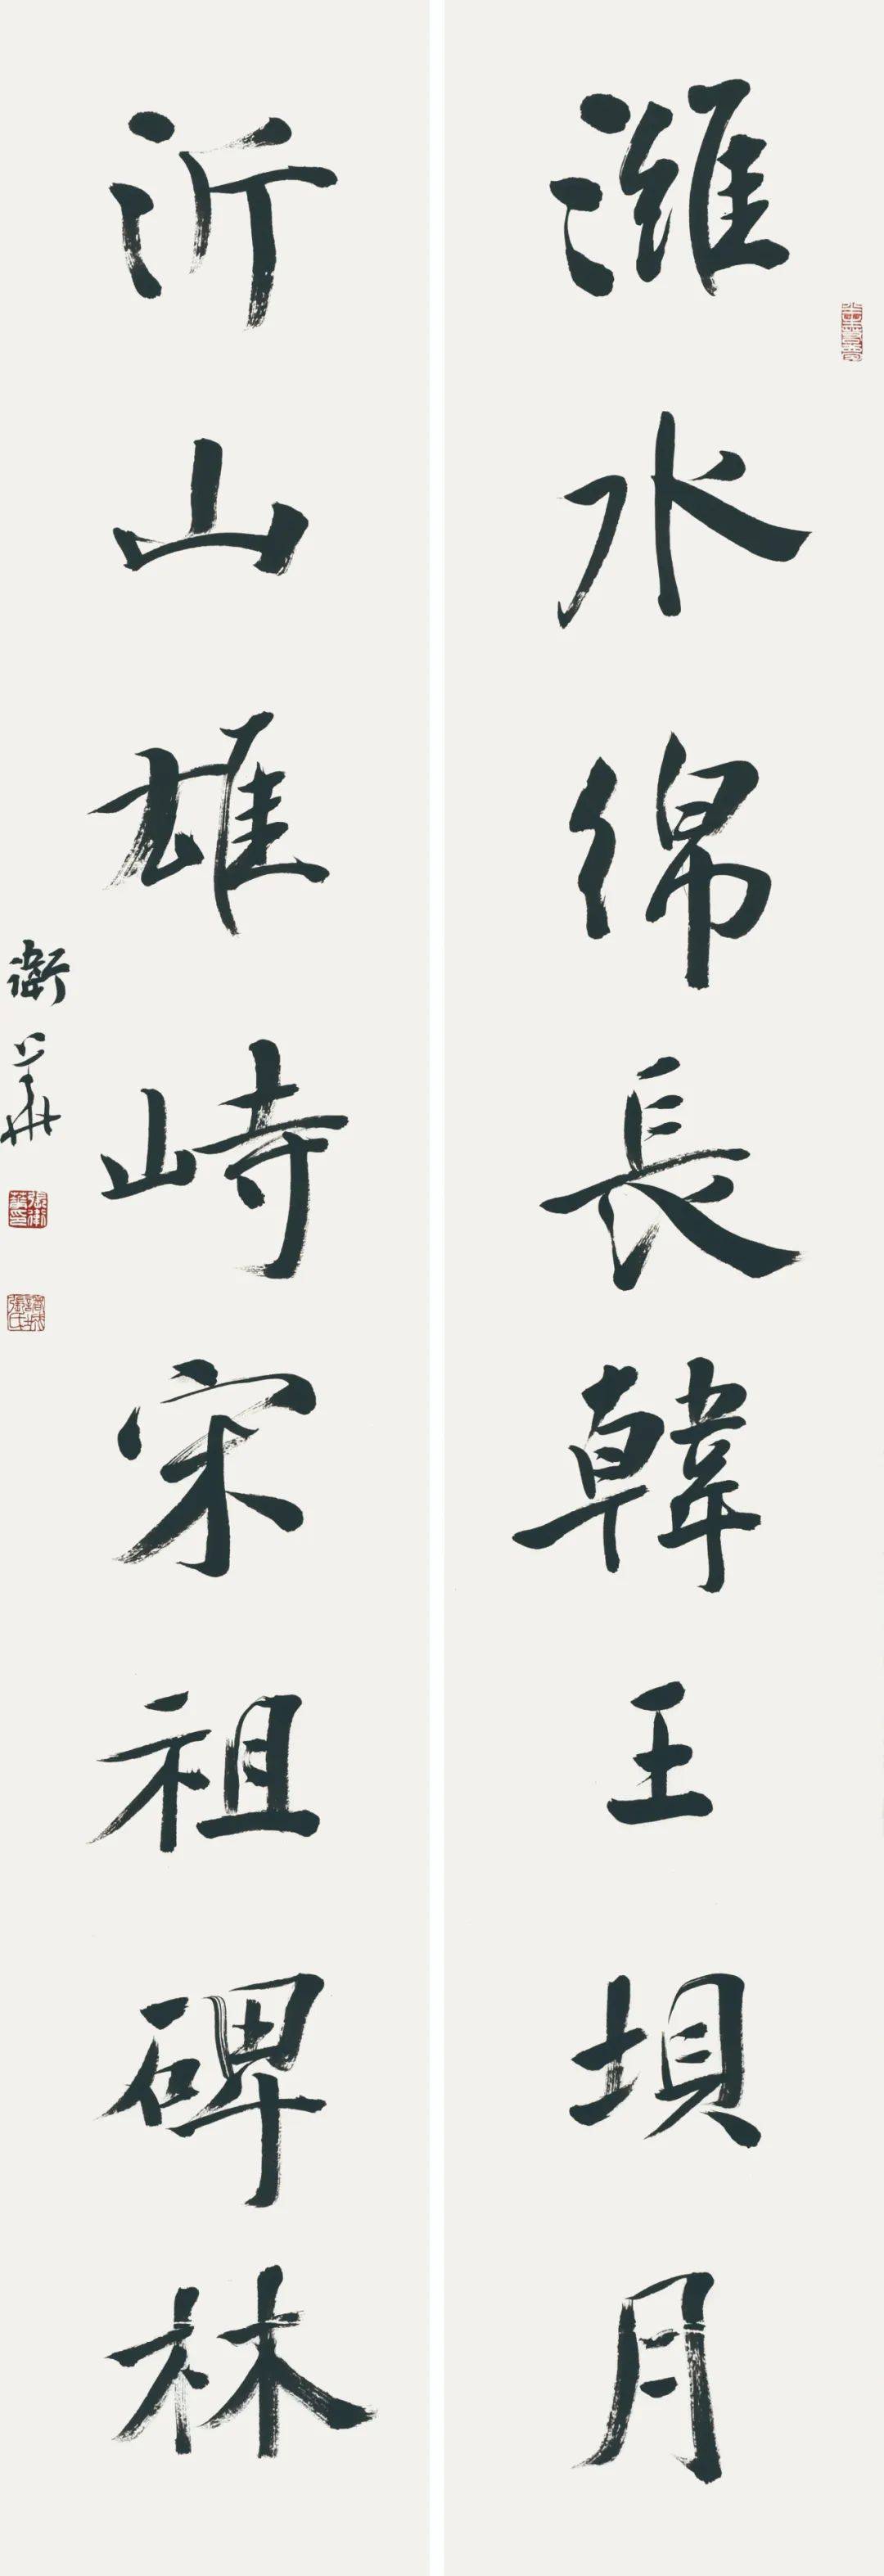 濰水綿長韓王壩月
沂山雄峙宋祖碑林
衛華